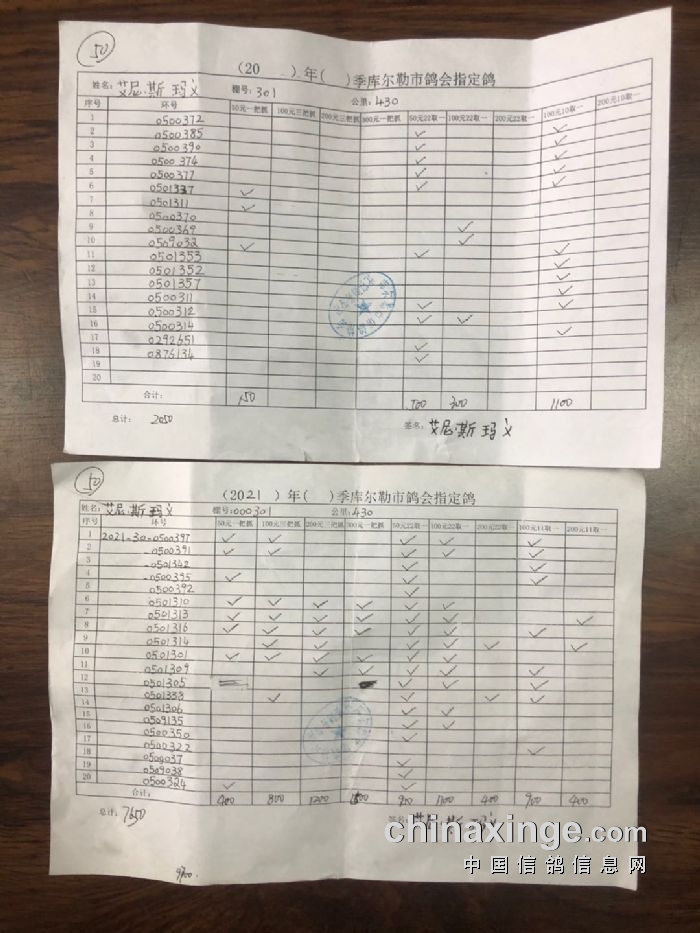 50
(20 )年( )季库尔勒市鸽会指定鸽
姓名: 艾尼·斯玛义 棚号: 301 公里: 430
序号 环号 50元一把抓 100元三把抓 200元三把抓 300元一把抓 50元22取一 100元22取一 200元22取一 100元10取一 200元10取一
1 0500372
2 0500385
3 0500390
4 0500374
5 0500377
6 0501337
7 0501311
8 0500370
9 0500369
10 0509032
11 0501353
12 0501352
13 0501357
14 0500311
15 0500312
16 0500314
17 0292651
18 0876134
19
20
合计: 150 500 300 1100
总计: 2050 签名: 艾尼·斯玛义
50
(2021 )年( )季库尔勒市鸽会指定鸽
姓名: 艾尼·斯玛义 棚号: 000301 公里: 430
序号 环号 50元一把抓 100元三把抓 200元三把抓 300元一把抓 50元22取一 100元22取一 200元22取一 100元11取一 200元11取一
1 2021-30-0500397
2 -0500391
3 -0501342
4 -0500395
5 0500392
6 0501310
7 0501313
8 0501316
9 0501314
10 0501301
11 0501309
12 0501305
13 0501338
14 0501306
15 0509135
16 0500350
17 0500322
18 0509037
19 0509038
20 0500324
合计: 400 800 1200 1500 900 1100 400 900 400
总计: 7650 签名: 艾尼·斯玛义
9700.
chinaxinge.com
中国信鸽信息网